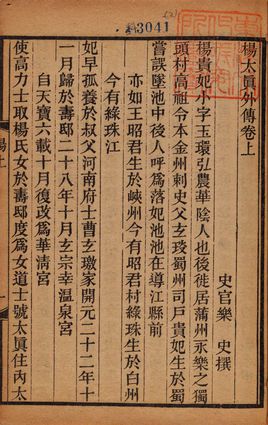 3041
楊太真外傳卷上
史官樂　史撰
楊貴妃小字玉環弘農華陰人也後徙居蒲州永樂之獨
頭村高祖令本金州刺史父玄琰蜀州司戶貴妃生於蜀
嘗誤墜池中後人呼爲落妃池池在導江縣前
亦如王昭君生於峽州今有昭君村綠珠生於白州
今有綠珠江
妃早孤養於叔父河南府士曹玄璬家開元二十二年十
一月歸於壽邸二十八年十月玄宗幸溫泉宮
自天寶六載十月復改爲華清宮
使高力士取楊氏女於壽邸度爲女道士號太真住內太